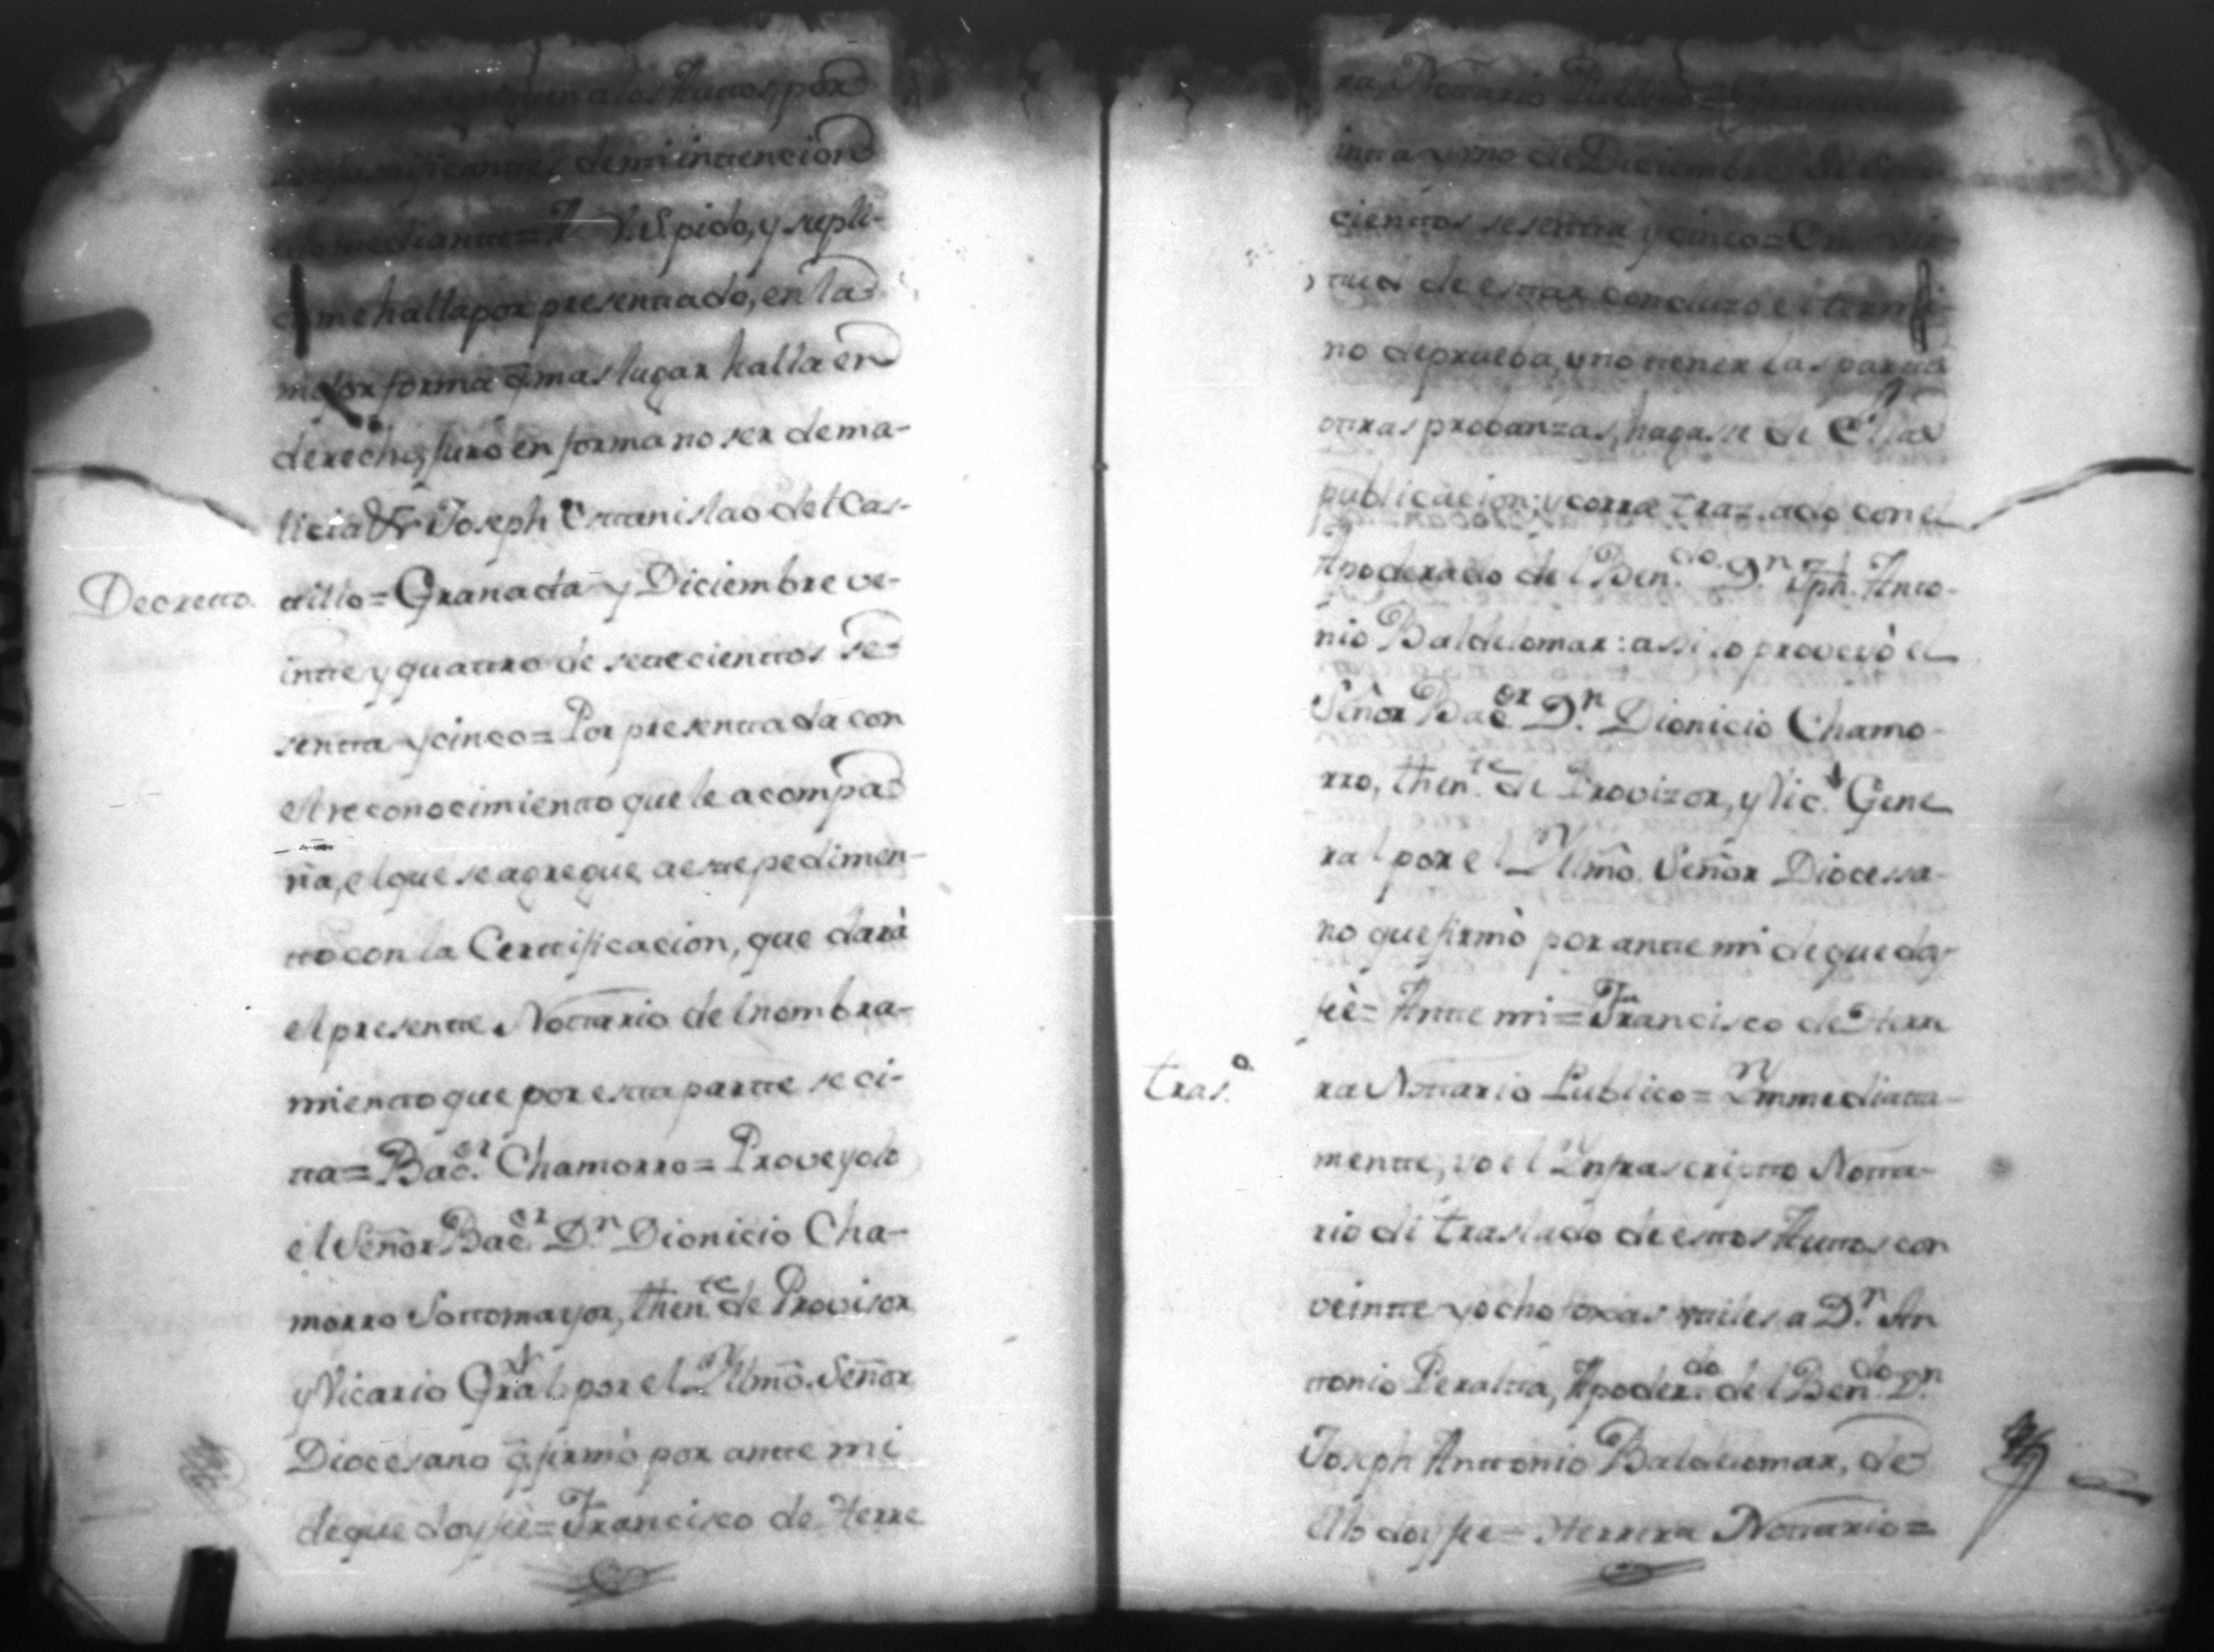 a los Auttos, por
demi intencion
mediantte = A V. S pido, y supli-
me halla por presenttado, en la
mejor forma q̃ mas lugar halla en
derecho, juro en forma no ser dema-
licia Fr. Joseph Esttanislao del Cas-
Decretto. ttillo = Granada y Diciembre ve-
intte y quattro de settecienttos se-
sentta y cinco = Por presenttada con
el reconocimientto que le acompa-
ña, el que se agregue a estte pedimen-
tto con la Certtificacion, que darà
el presentte Nottario del nombra-
mientto que por estta partte se ci-
tta = Bac.er Chamorro = Proveyolo
el Señor Bac.er D.n Dionicio Cha-
morro Sottomayor, then.te de Provisor
y Vicario Gral. por el Yllmõ. Señor
Diocesano q̃ firmò por antte mi
de que doy feè = Francisco de Herre
ra, Nottario Publico =
intta y uno de Diciembre de sette
cienttos sesentta y cinco = En virt-
tud de esttar concluzo el ttermi-
no de prueba, y no ttener las parttes
ottras probanzas, hagasse de Ellas
publicacion; y corra traslado con el
Apoderado del Ben.do D.n Jph. Anto-
nio Baldelomar: assi lo proveyò el
Señor Bac.er D.n Dionicio Chamo-
rro, then.te de Provizor, y Vic.o Gene
ral por el Yllmõ. Señor Diocessa-
no que firmò por antte mi de que doy
feè = Antte mi = Francisco de Herre
tras.o ra Nottario Publico = Ynmediatta-
mentte, yo el Ynfrascriptto Notta-
rio di traslado de esttos Auttos con
veintte y ocho foxas uttiles a D.n An
ttonio Peraltta, Apoder.do del Ben.do D.n
Joseph Anttonio Baldelomar, de
Ello doy feè = Herrera Nottario =